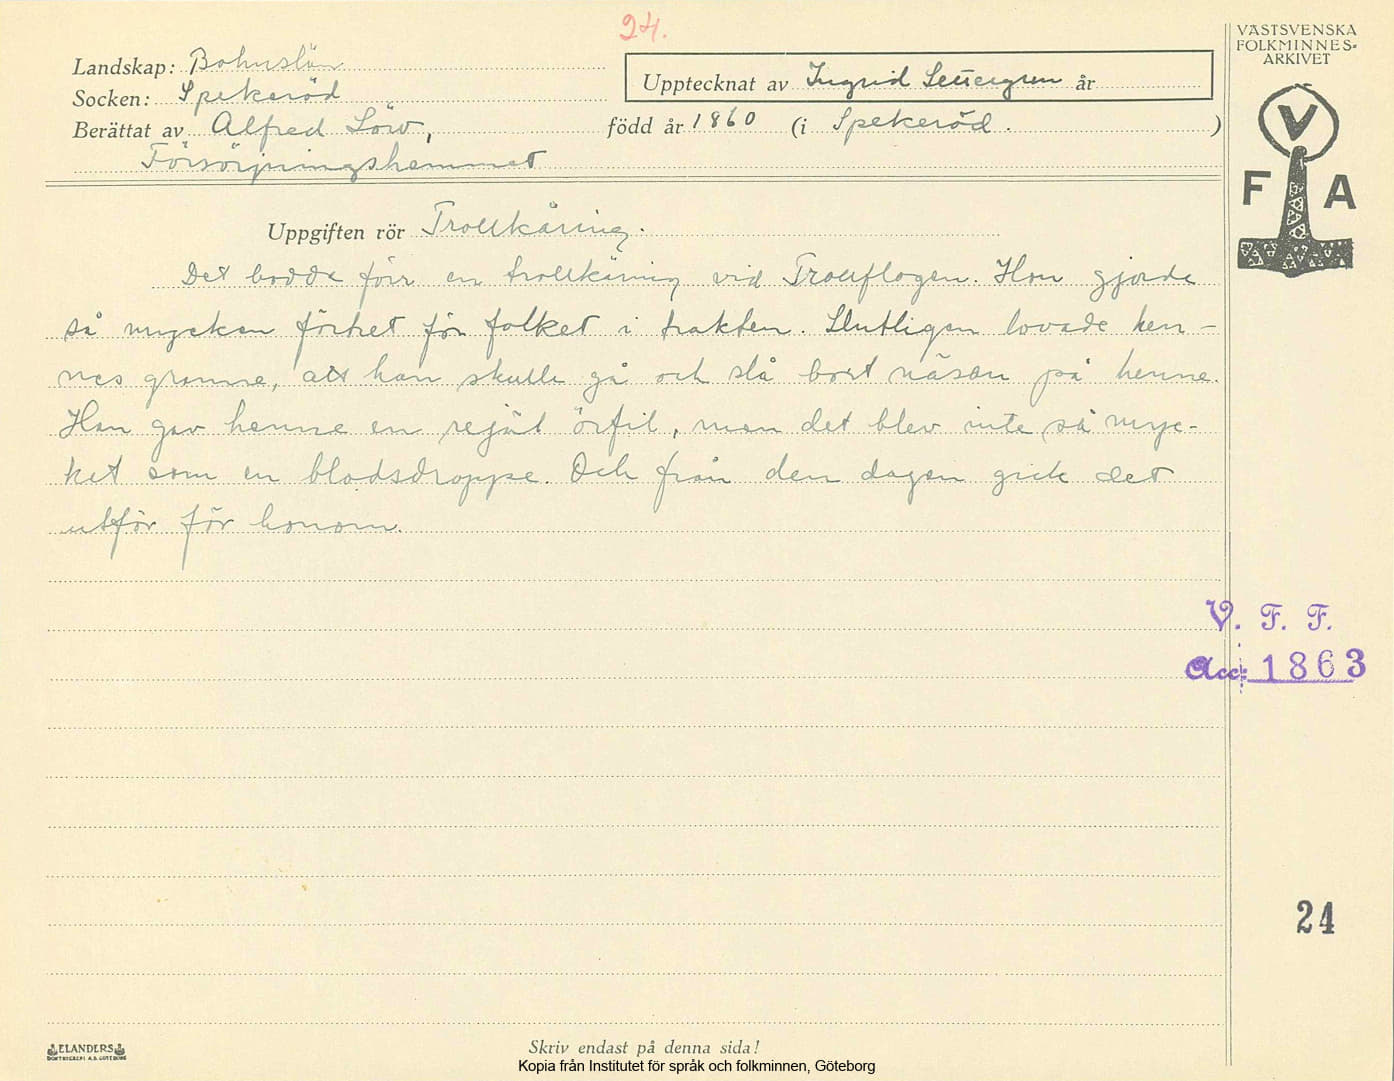 24.
VÄSTSVENSKA
FOLKMINNES-
ARKIVET
Landskap: Bohuslän
Upptecknat av Ingrid år
Socken: Spekeröd
Berättat av Alfred Löw, född år 1860 (i Spekeröd. )
Försörjningshemmet
V
F A
Uppgiften rör Trollkäring.
Det bodde förr en trollkäring vid Trollflogen. Hon gjorde
så mycken förtret för folket i trakten. Slutligen lovade hen-
nes granne, att han skulle gå och slå bort näsan på henne.
Han gav henne en rejäl örfil, men det blev inte så myc-
ket som en blodsdroppe. Och från den dagen gick det
utför för honom.
V. F. F.
Acc: 1863
24
ELANDERS
BOKTRYCKERI A.B. GÖTEBORG
Skriv endast på denna sida!
Kopia från Institutet för språk och folkminnen, Göteborg